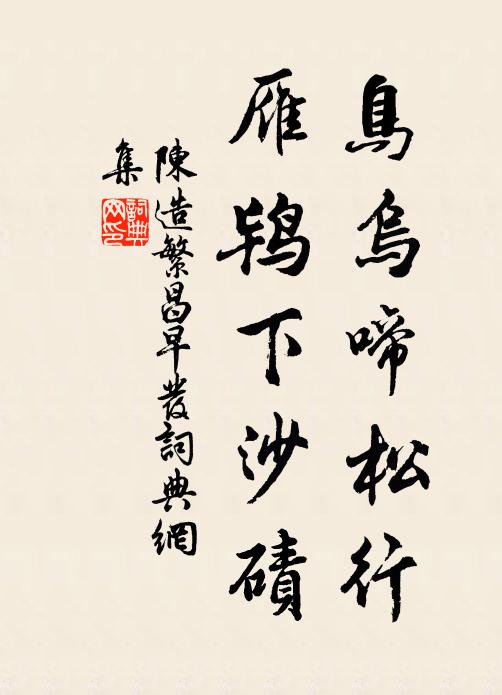 鳥烏啼松行
雁鴇下沙磧
陳造繁昌早發詞典網
集
詞典網印